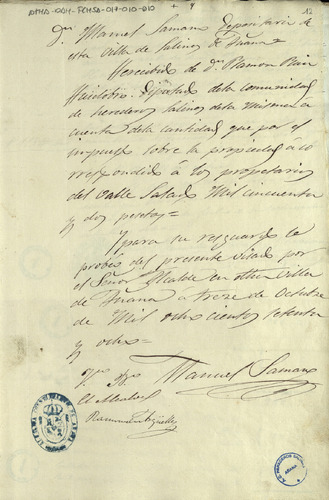 ATHA-DAH-FCMSA-017-010-010
12
Dn. Manuel Samano Depositario de
esta Villa de Salinas de Añana =
He recibido de Dn. Ramon Ruiz
Diputado de la Comunidad
de herederos Salinos de la misma a
cuenta de la cantidad que por el
impuesto sobre la propiedad a co
rrespondido á los propietarios
del Valle Salado Mil cincuenta
y dos pesetas =
Y para su resguardo le
probeo del presente visado por
el Señor Alcalde en dicha Villa
de Añana a trece de Octubre
de Mil ochocientos setenta
y ocho =
Vº Bº
Manuel Samano
El Alcalde
Ramon
AÑANA